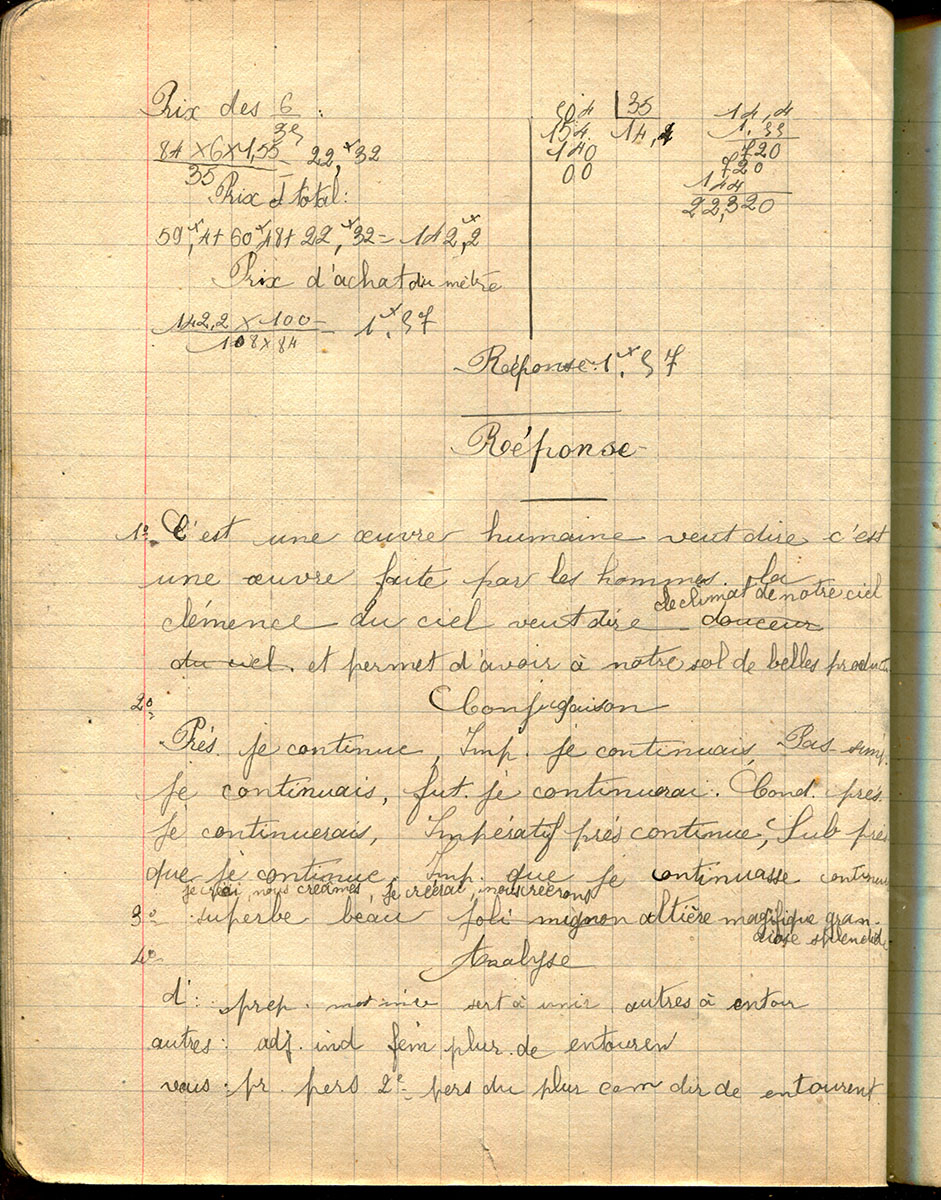 Prix des 6/35 :
84 × 6 × 1,55 / 35 = 22,32
Prix total:
59,4 + 60,48 + 22,32 = 142,2
Prix d'achat du mètre
142,2 × 100 / 108 × 84 = 1,57
504 | 35
154 14,4
140
00
14,4
1,55
720
720
144
22,320
Réponse: 1,57
Réponse
1º C'est une œuvre humaine veut dire c'est
une œuvre faite par les hommes. la
le climat de notre ciel
clémence du ciel veut dire douceur
du ciel. et permet d'avoir à notre sol de belles
2º Conjugaison
Prés je continue, Imp. je continuais, Pas simp.
je continuais, fut. je continuerai. Cond. prés.
je continuerais, Impératif prés continue, Sub prés
que je continue. Imp. que je continuasse
je créai, nous créames je créerai, nous créerons
3º superbe beau joli mignon altière magifique gran-
diose splendide
4º Analyse
d': prep. sert à unir autres à entour
autres: adj. ind fém plur. de entouren
vous: pr. pers 2e pers du plur com dir de entourent